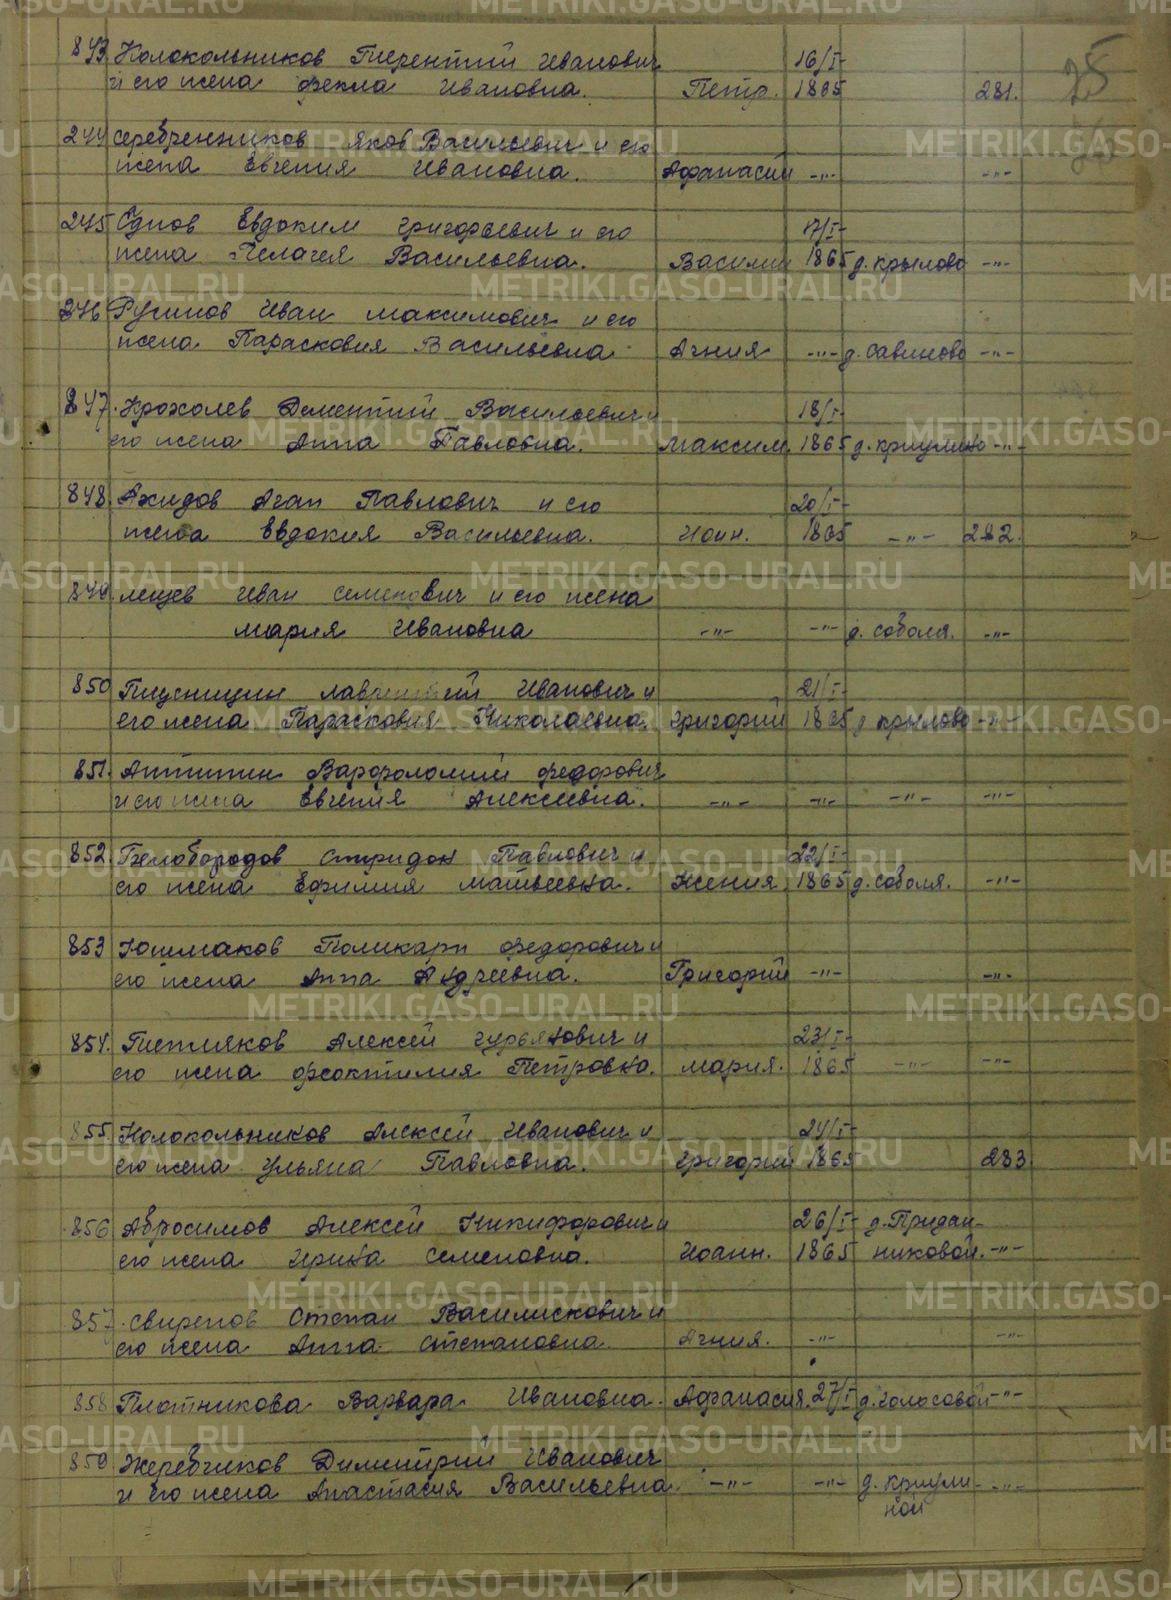 25
843 Колокольников Терентий Иванович 16/I-
и его жена Фекла Ивановна. Петр. 1865 281.
244 Серебренников Яков Васильевич и его
жена Евгения Ивановна. Афанасий -"- -"-
245 Евдоким Григорьевич и его 17/I-
жена Пелагея Васильевна. Василий 1865 д. Крылово -"-
246 Русинов Иван Максимович и его
жена Парасковия Васильевна Агния -"- д. Савиново -"-
847. Крохалев Дементий Васильевич и 18/I-
его жена Анна Павловна. Максим. 1865 д. Криулино -"-
848. Агап Павлович и его 20/I-
жена Евдокия Васильевна. Иоин. 1865 -"- 282.
849. Лещев Иван Семенович и его жена
Мария Ивановна -"- -"- д. Соболя. -"-
850 Лаврентий Иванович и 21/I-
его жена Парасковия Николаевна Григорий 1865 д Крылово -"-
851. Антипин Варфоломий Федорович
и его жена Евгения Алексеевна. -"- -"- -"- -"-
852. Белобородов Спиридон Павлович и 22/I-
его жена Ефимия Матвеевна. Ксения 1865 д. Соболя. -"-
853 Юшмаков Поликарп Федорович и
его жена Анна Андреевна. Григорий -"- -"-
854. Алексей Гурьянович и 23/I-
его жена Феоктилия Петровна. Мария. 1865 -"- -"-
855. Колокольников Алексей Иванович и 24/I-
его жена Ульяна Павловна. Григорий 1865 283
856 Абросимов Алексей Никифорович и 26/I- д. Придан-
его жена Ирина Семеновна. Иоанн. 1865 никовой. -"-
857. Свиренов Степан Василискович и
его жена Анна Степановна Агния. -"- -"-
858 Плотникова Варвара Ивановна. Афанасия. 27/I д. Голосовой -"-
859 Жеребчиков Димитрий Иванович
и его жена Анастасия Васильевна -"- -"- д. Криули- -"-
ной
METRIKI.GASO-URAL.RU